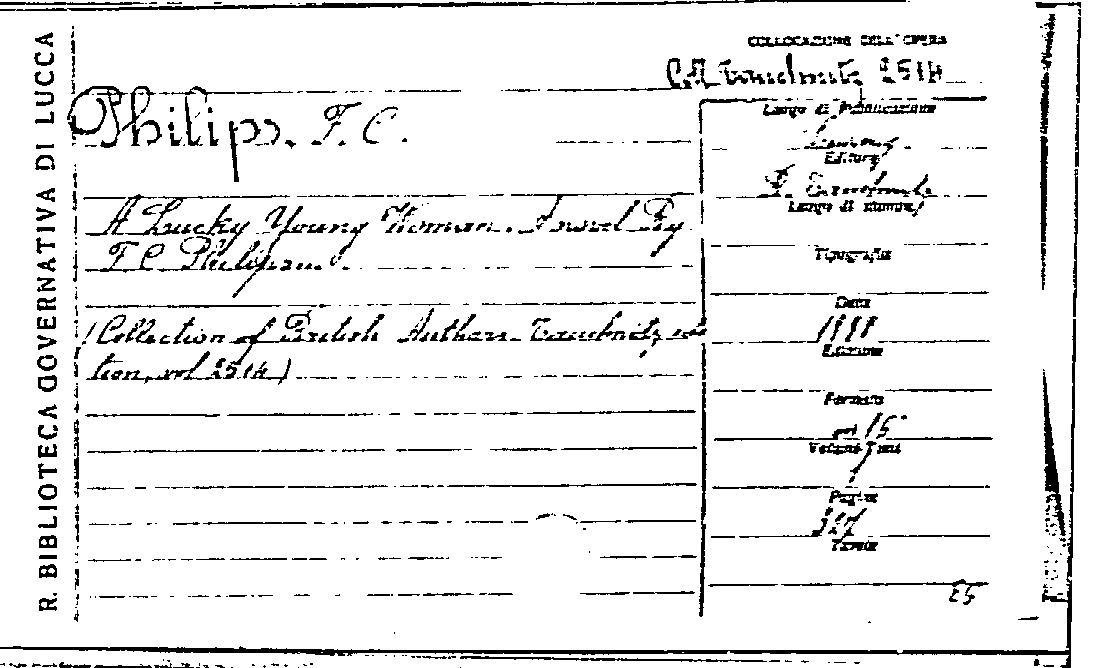 R. BIBLIOTECA GOVERNATIVA DI LUCCA
COLLOCAZIONE DELL'OPERA
Tauchnitz 2514
Philips, F. C.
Luogo di Pubblicazione
Editore
Luogo di stampa
Tipografia
Data
1888
Edizione
Formato
in 16°
Volumi Tomi
1
Pagine
Tavole
A Lucky Young Woman. A novel By
F C Philips
(Collection of British Authors. Tauchnitz edi
tion, vol 2514)